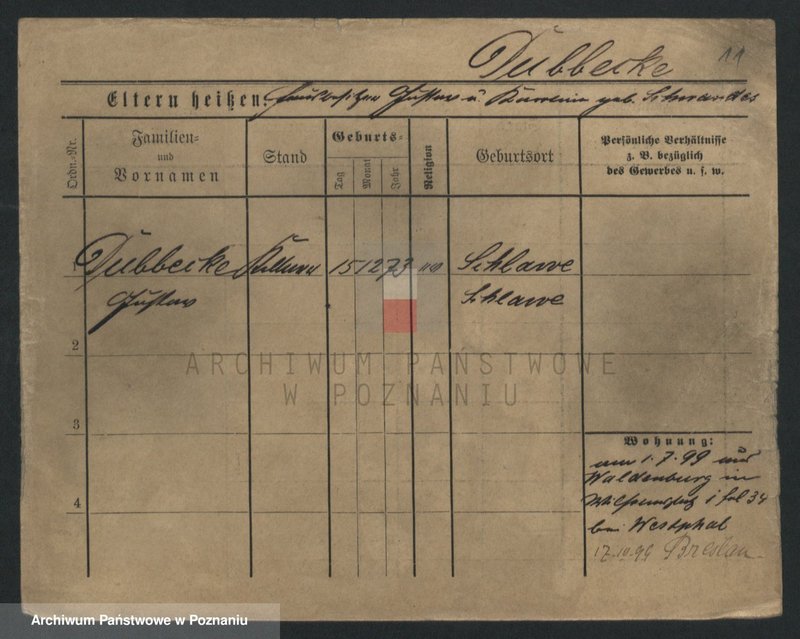 Dubbecke 11
Eltern heißen: Hausbesitzer Gustav u. geb. Schwandes
Ordn.-Nr.
Familien-
und
Vornamen
Stand
Geburts-
Tag
Monat
Jahr
Religion
Geburtsort
Persönliche Verhältnisse
z. B. bezüglich
des Gewerbes u. s. w.
1 Dubbecke Kellner 15 12 73 Schlawe
Gustav Schlawe
2
ARCHIWUM PAŃSTWOWE
W POZNANIU
3
4
Wohnung:
am 1.7.99 aus
Waldenburg in
34
bei Westphal
17.10.99 Breslau
Archiwum Państwowe w Poznaniu